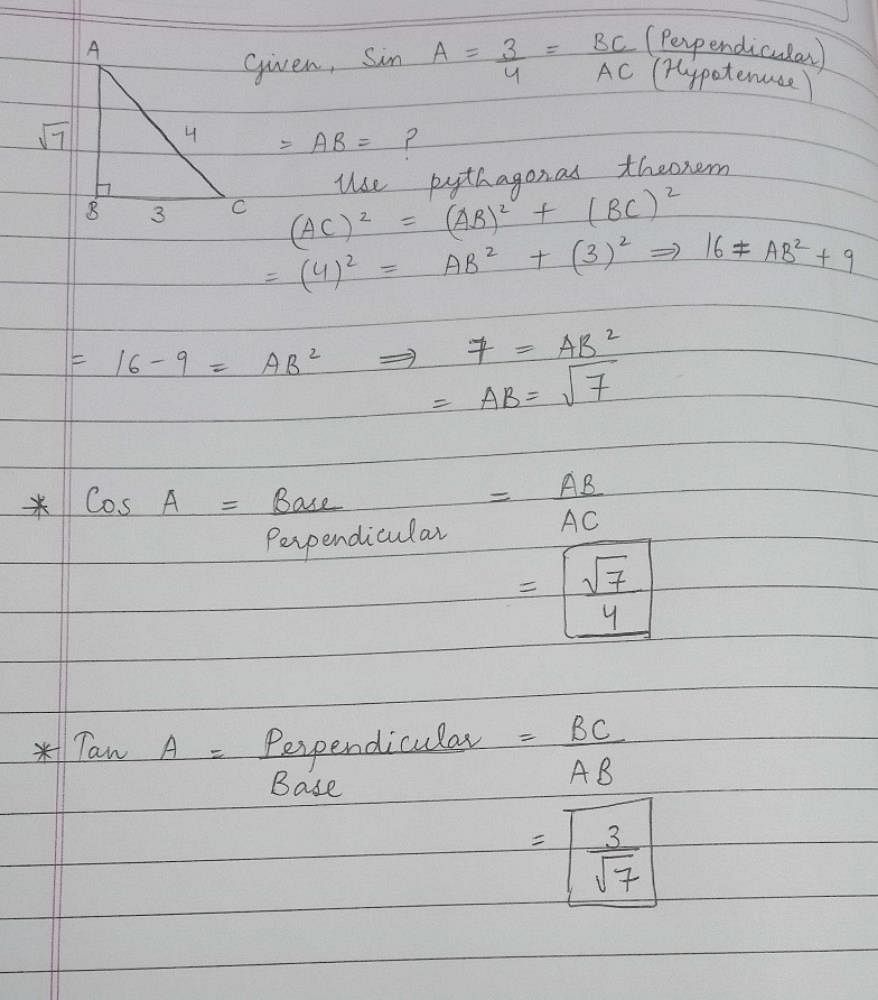 A
Given, Sin A = 3/4 = BC (Perpendicular) / AC (Hypotenuse)
√7
4
= AB = ?
B
3
C
Use pythagoras theorem
(AC)² = (AB)² + (BC)²
= (4)² = AB² + (3)² ⇒ 16 = AB² + 9
= 16 - 9 = AB² ⇒ 7 = AB²
= AB = √7
* Cos A = Base/Perpendicular = AB/AC
= √7/4
* Tan A = Perpendicular/Base = BC/AB
= 3/√7